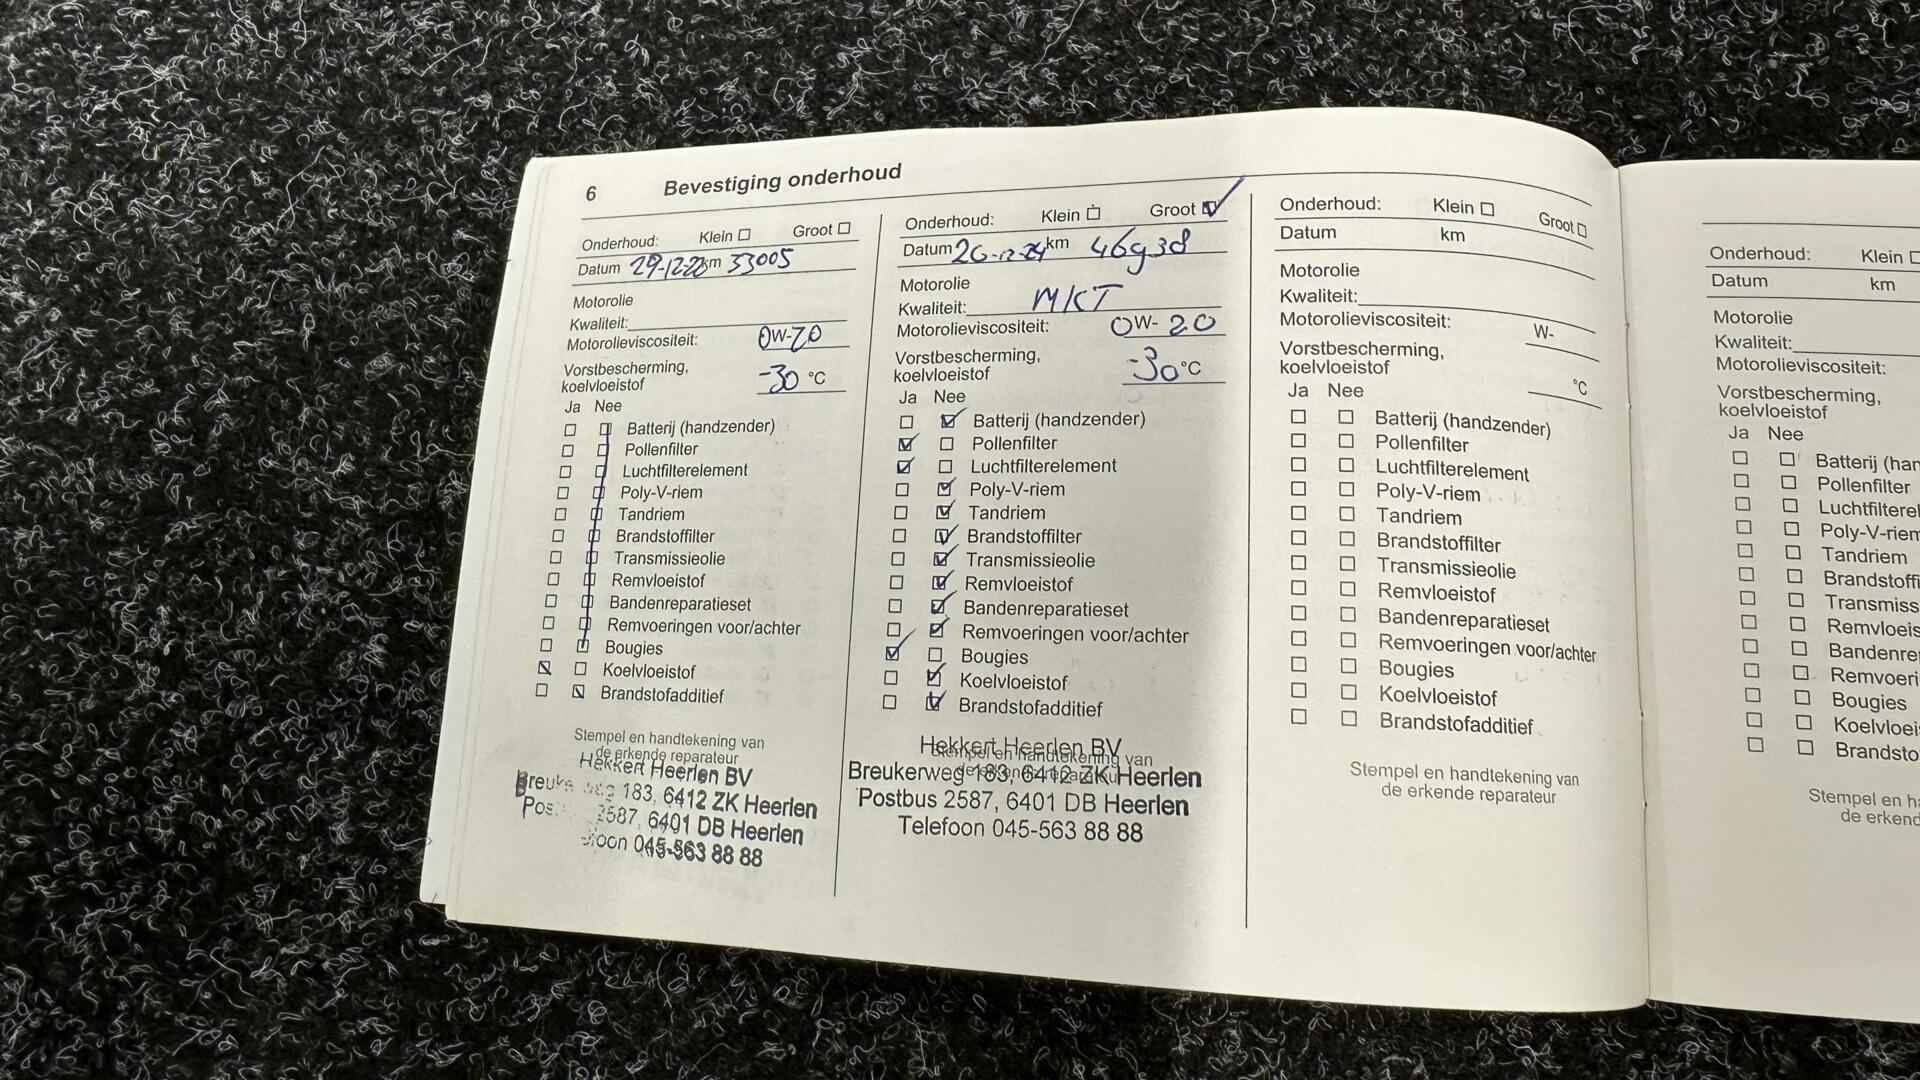 6 Bevestiging onderhoud
Onderhoud: Klein Groot
Datum 29-12-22 km 33005
Motorolie
Kwaliteit:
Motorolieviscositeit: 0W-20
Vorstbescherming,
koelvloeistof -30 °C
Ja Nee
Batterij (handzender)
Pollenfilter
Luchtfilterelement
Poly-V-riem
Tandriem
Brandstoffilter
Transmissieolie
Remvloeistof
Bandenreparatieset
Remvoeringen voor/achter
Bougies
Koelvloeistof
Brandstofadditief
Stempel en handtekening van
de erkende reparateur
Hekkert Heerlen BV
Breukerweg 183, 6412 ZK Heerlen
Postbus 2587, 6401 DB Heerlen
Telefoon 045-563 88 88
Onderhoud: Klein Groot
Datum 20-12-24 km 46938
Motorolie
Kwaliteit: MKT
Motorolieviscositeit: 0W-20
Vorstbescherming,
koelvloeistof -30 °C
Ja Nee
Batterij (handzender)
Pollenfilter
Luchtfilterelement
Poly-V-riem
Tandriem
Brandstoffilter
Transmissieolie
Remvloeistof
Bandenreparatieset
Remvoeringen voor/achter
Bougies
Koelvloeistof
Brandstofadditief
Stempel en handtekening van
de erkende reparateur
Hekkert Heerlen BV
Breukerweg 183, 6412 ZK Heerlen
Postbus 2587, 6401 DB Heerlen
Telefoon 045-563 88 88
Onderhoud: Klein Groot
Datum km
Motorolie
Kwaliteit:
Motorolieviscositeit: W-
Vorstbescherming,
koelvloeistof °C
Ja Nee
Batterij (handzender)
Pollenfilter
Luchtfilterelement
Poly-V-riem
Tandriem
Brandstoffilter
Transmissieolie
Remvloeistof
Bandenreparatieset
Remvoeringen voor/achter
Bougies
Koelvloeistof
Brandstofadditief
Stempel en handtekening van
de erkende reparateur
Onderhoud: Klein
Datum km
Motorolie
Kwaliteit:
Motorolieviscositeit:
Vorstbescherming,
koelvloeistof
Ja Nee
Batterij (han
Pollenfilter
Luchtfilterel
Poly-V-riem
Tandriem
Brandstoffi
Transmiss
Remvloeis
Bandenre
Remvoeri
Bougies
Koelvloei
Brandsto
Stempel en ha
de erkend